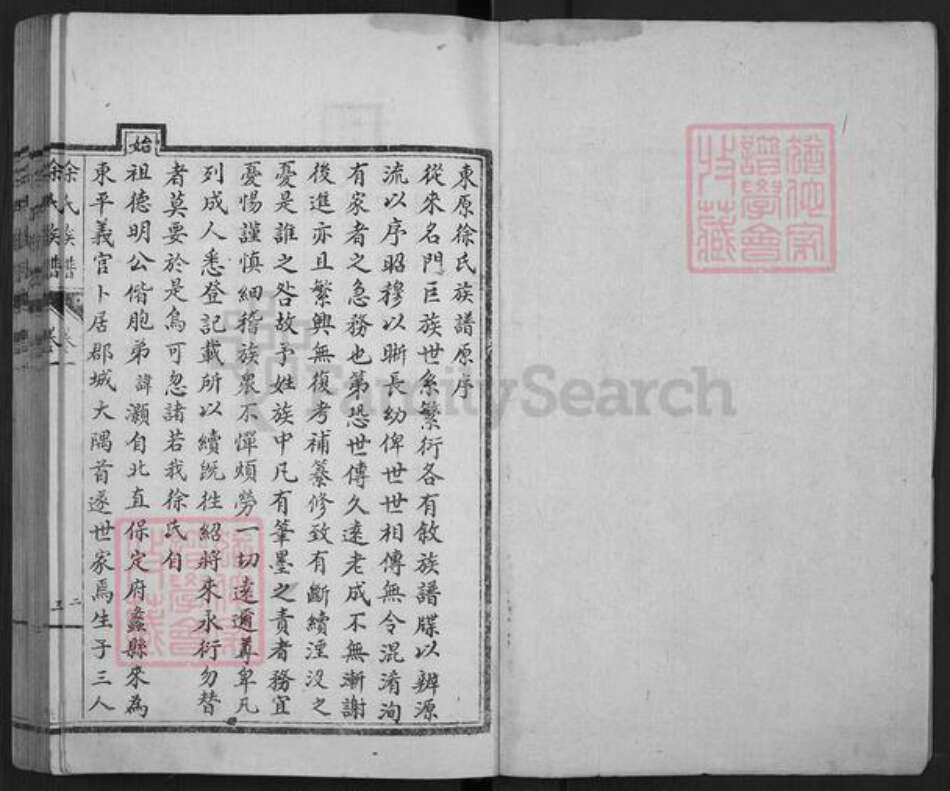 東原徐氏族譜原序
從來名門巨族世系繁衍各有敘族譜牒以辨源
流以序昭穆以晰長幼俾世世相傳無令混淆洵
有家者之急務也第恐世傳久遠老成不無漸謝
後進亦且繁興無復考補纂修致有斷續湮沒之
憂是誰之咎故予姓族中凡有筆墨之責者務宜
憂惕謹慎細稽族眾不憚煩勞一切遠邇尊卑凡
列成人悉登記載所以續既往紹將來永衍勿替
者莫要於是烏可忽諸若我徐氏自
始
祖德明公偕胞弟諱灝自北直保定府蠡縣來為
東平義官卜居郡城大隅首遂世家焉生子三人
徐氏族譜 卷一 二
徐氏族譜 卷一 三
譜學會
收藏
FamilySearch